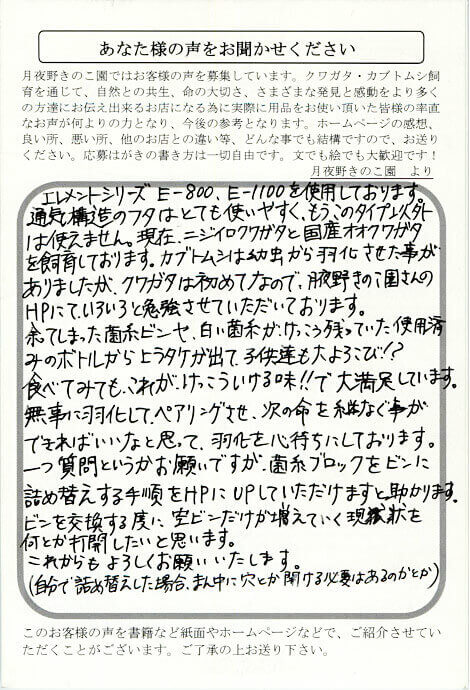 あなた様の声をお聞かせください
月夜野きのこ園ではお客様の声を募集しています。クワガタ・カブトムシ飼
育を通じて、自然との共生、命の大切さ、さまざまな発見と感動をより多く
の方達にお伝え出来るお店になる為に実際に用品をお使い頂いた皆様の率直
なお声が何よりの力となり、今後の参考となります。ホームページの感想、
良い所、悪い所、他のお店との違い等、どんな事でも結構ですので、お送り
ください。応募はがきの書き方は一切自由です。文でも絵でも大歓迎です！
月夜野きのこ園　より
エレメントシリーズ E-800、E-1100を使用しております。
通気構造のフタはとても使いやすく、もうこのタイプ以外
は使えません。現在、ニジイロクワガタと国産オオクワガタ
を飼育しております。カブトムシは幼虫から羽化させた事が
ありましたが、クワガタは初めてなので、月夜野きのこ園さんの
HPにて、いろいろと勉強させていただいております。
余ってしまった菌糸ビンや、白い菌糸がけっこう残っていた使用済
みのボトルからヒラタケが出て、子供達も大よろこび!?
食べてみても、これが、けっこういける味!!で大満足しています。
無事に羽化して、ペアリングさせ、次の命を継なぐ事が
できればいいなと思って、羽化を心待ちにしております。
一つ質問というかお願いですが、菌糸ブロックをビンに
詰め替えする手順をHPにUPしていただけますと助かります。
ビンを交換する度に、空ビンだけが増えていく現状を
何とか打開したいと思います。
これからもよろしくお願いいたします。
(自分で詰め替えした場合、まん中に穴とか開ける必要はあるのかとか)
このお客様の声を書籍など紙面やホームページなどで、ご紹介させてい
ただくことがございます。ご了承の上お送り下さい。